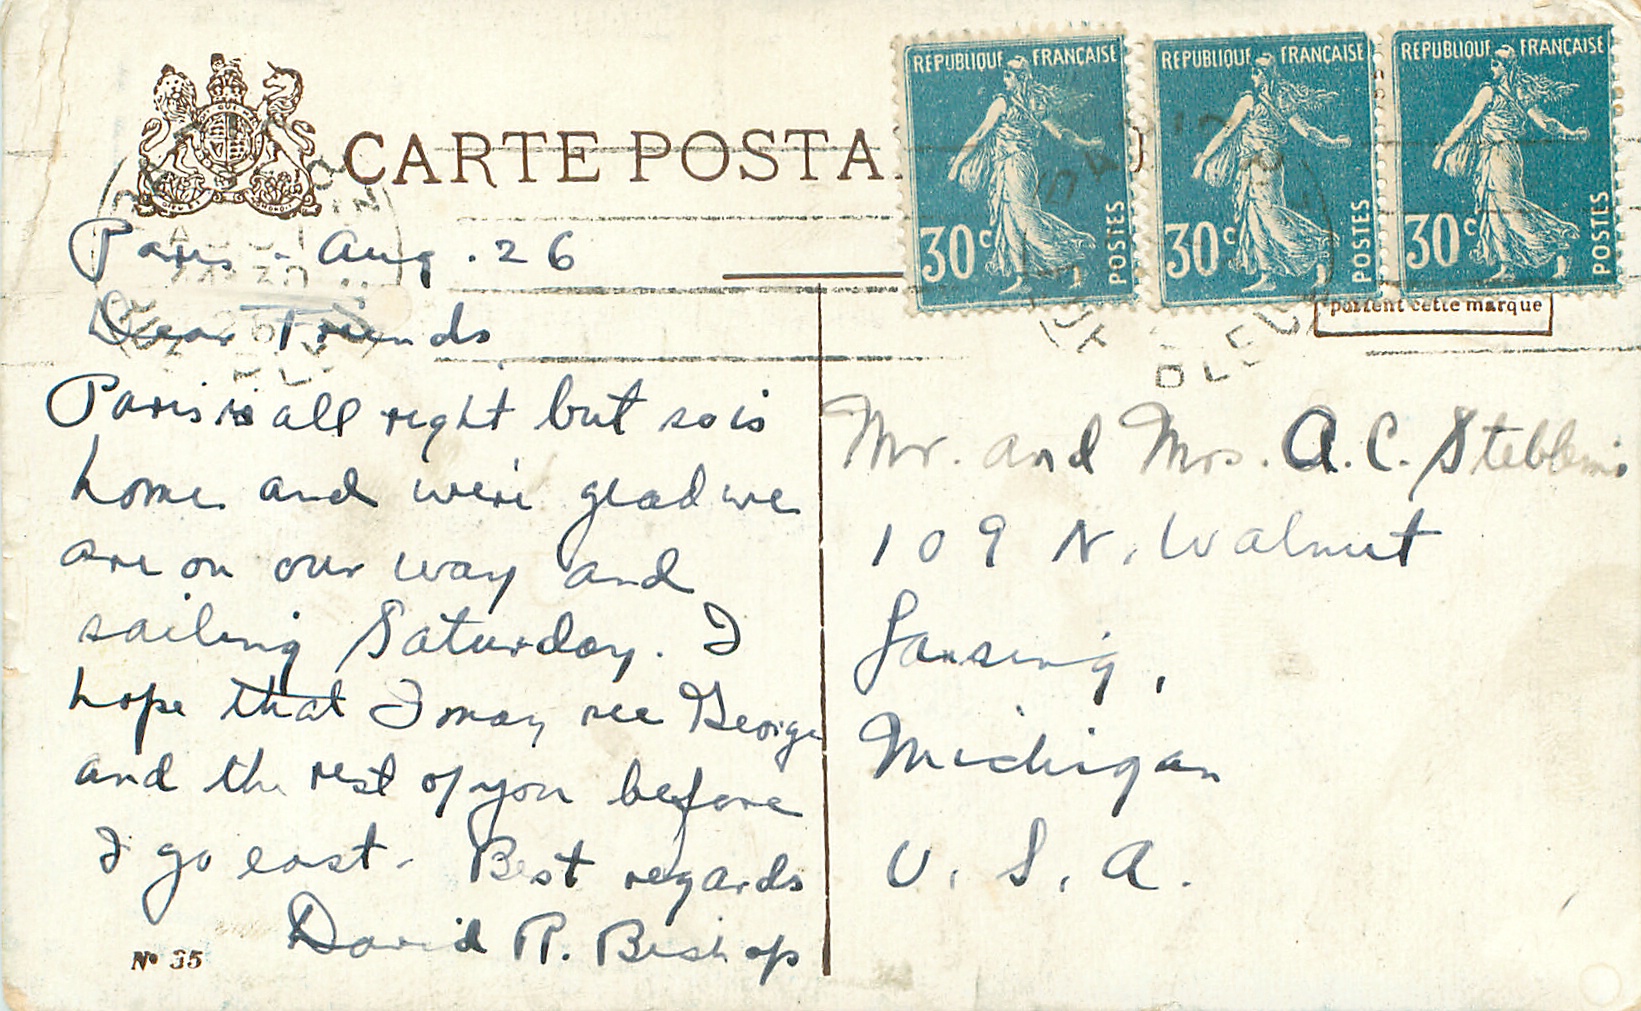 CARTE POSTA
REPUBLIQUE FRANÇAISE
30c
POSTES
REPUBLIQUE FRANÇAISE
30c
POSTES
REPUBLIQUE FRANÇAISE
30c
POSTES
portent cette marque
Paris - Aug. 26
Dear Friends
Paris is all right but so is
home and we're glad we
are on our way and
sailing Saturday. I
hope that I may see George
and the rest of you before
I go east. Best regards
David R. Bishop
No 35
Mr. and Mrs. A.C. Stebbins
109 N. Walnut
Lansing,
Michigan
U.S.A.